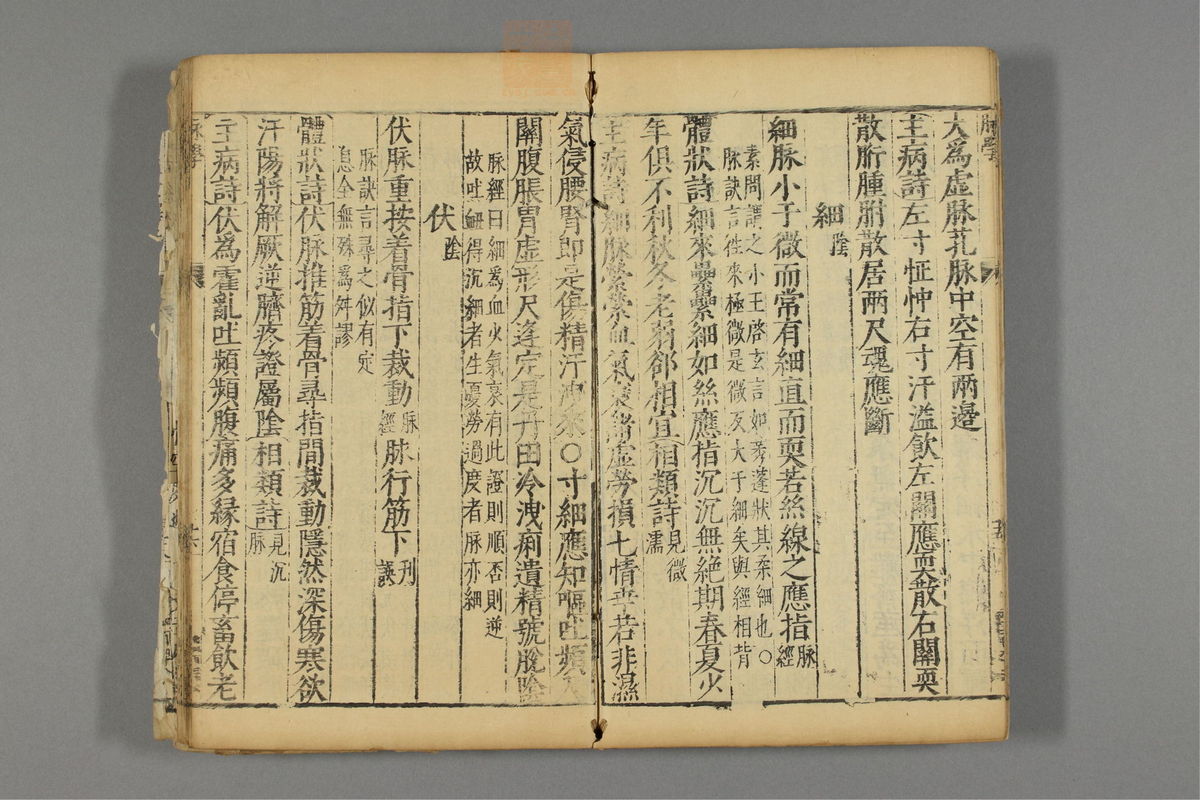 脉學
大為虛脉芤脉中空有兩邊
主病詩左寸怔忡右寸汗溢飲左關應耎散右關耎
散胻腫胕散居兩尺魂應斷
細陰
細脉小于微而常有細直而耎若絲線之應指脉經
素問謂之小王啓玄言如莠蓬狀其柔細也○
脉訣言徃來極微是微反大于細矣與經相背
體狀詩細來纍纍細如絲應指沉沉無絶期春夏少
年俱不利秋冬老弱郤相宜相類詩見微濡
主病詩細脉縈縈血氣衰諸虛勞損七情乖若非濕
氣侵腰腎即是傷精汗洩來○寸細應知嘔吐頻入
關腹脹胃虛形尺逢定是丹田冷洩痢遺精號脫陰
脉經曰細為血少氣衰有此證則順否則逆
故吐衂得沉細者生憂勞過度者脉亦細
伏陰
伏脉重按着骨指下裁動脉經脉行筋下刋誤
脉訣言尋之似有定
息全無殊為舛謬
體狀詩伏脉推筋着骨尋指間裁動隱然深傷寒欲
汗陽將解厥逆臍疼證屬陰相類詩見沉脉
主病詩伏為霍亂吐頻頻腹痛多緣宿食停畜飲老
脉學